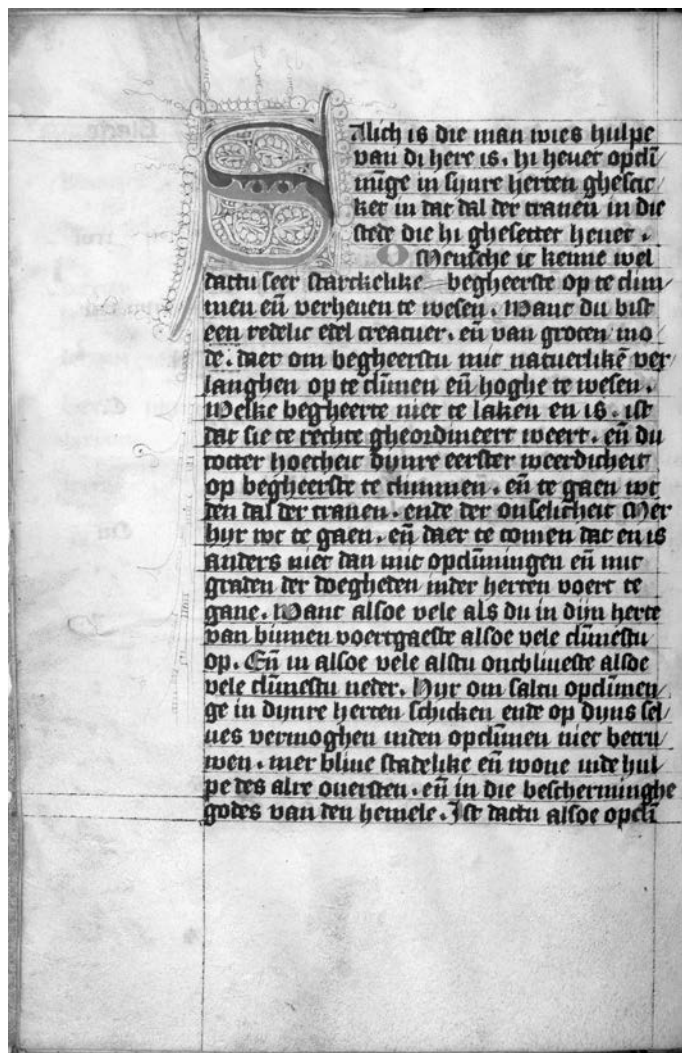 Salich is die man wies hulpe
van di here is. hi heuet opclī/
mīge in synre herten ghescic/
ket in dat dal der tranen in die
stede die hi ghesettet heuet.
O Mensche ic kenne wel
dattu seer starckelike begheerste op te clim/
men eñ verheuen te wesen. Want du bist
een redelic edel creatuer. eñ van groten mo
de. daer om begheerstu mit natuerlikē ver
langhen op te clīmen eñ hoghe te wesen.
Welke begheerte niet te laken en is. ist
dat sie te rechte gheordineert weert. eñ du
totter hoecheit dynre eerster weerdicheit
op begheerste te climmen. eñ te gaen wt
den dal der tranen. ende der onselicheit Mer
hyr wt te gaen. eñ daer te comen dat en is
anders niet dan mit opclīmingen eñ mit
graden der doegheden inder herten voert te
gane. Want alsoe vele als du in dijn herte
van binnen voertgaeste alsoe vele clīmestu
op. Eñ in alsoe vele alstu ontbliueste alsoe
vele clīmestu neder. Hyr om saltu opclīmen/
ge in dynre herten schicken ende op dyns sel
ues vermoghen inden opclīmen niet betru
wen. mer bliue stadelike eñ wone inde hul
pe des alre ouersten. eñ in die bescherminghe
godes van den hemele. Ist dattu alsoe opclī